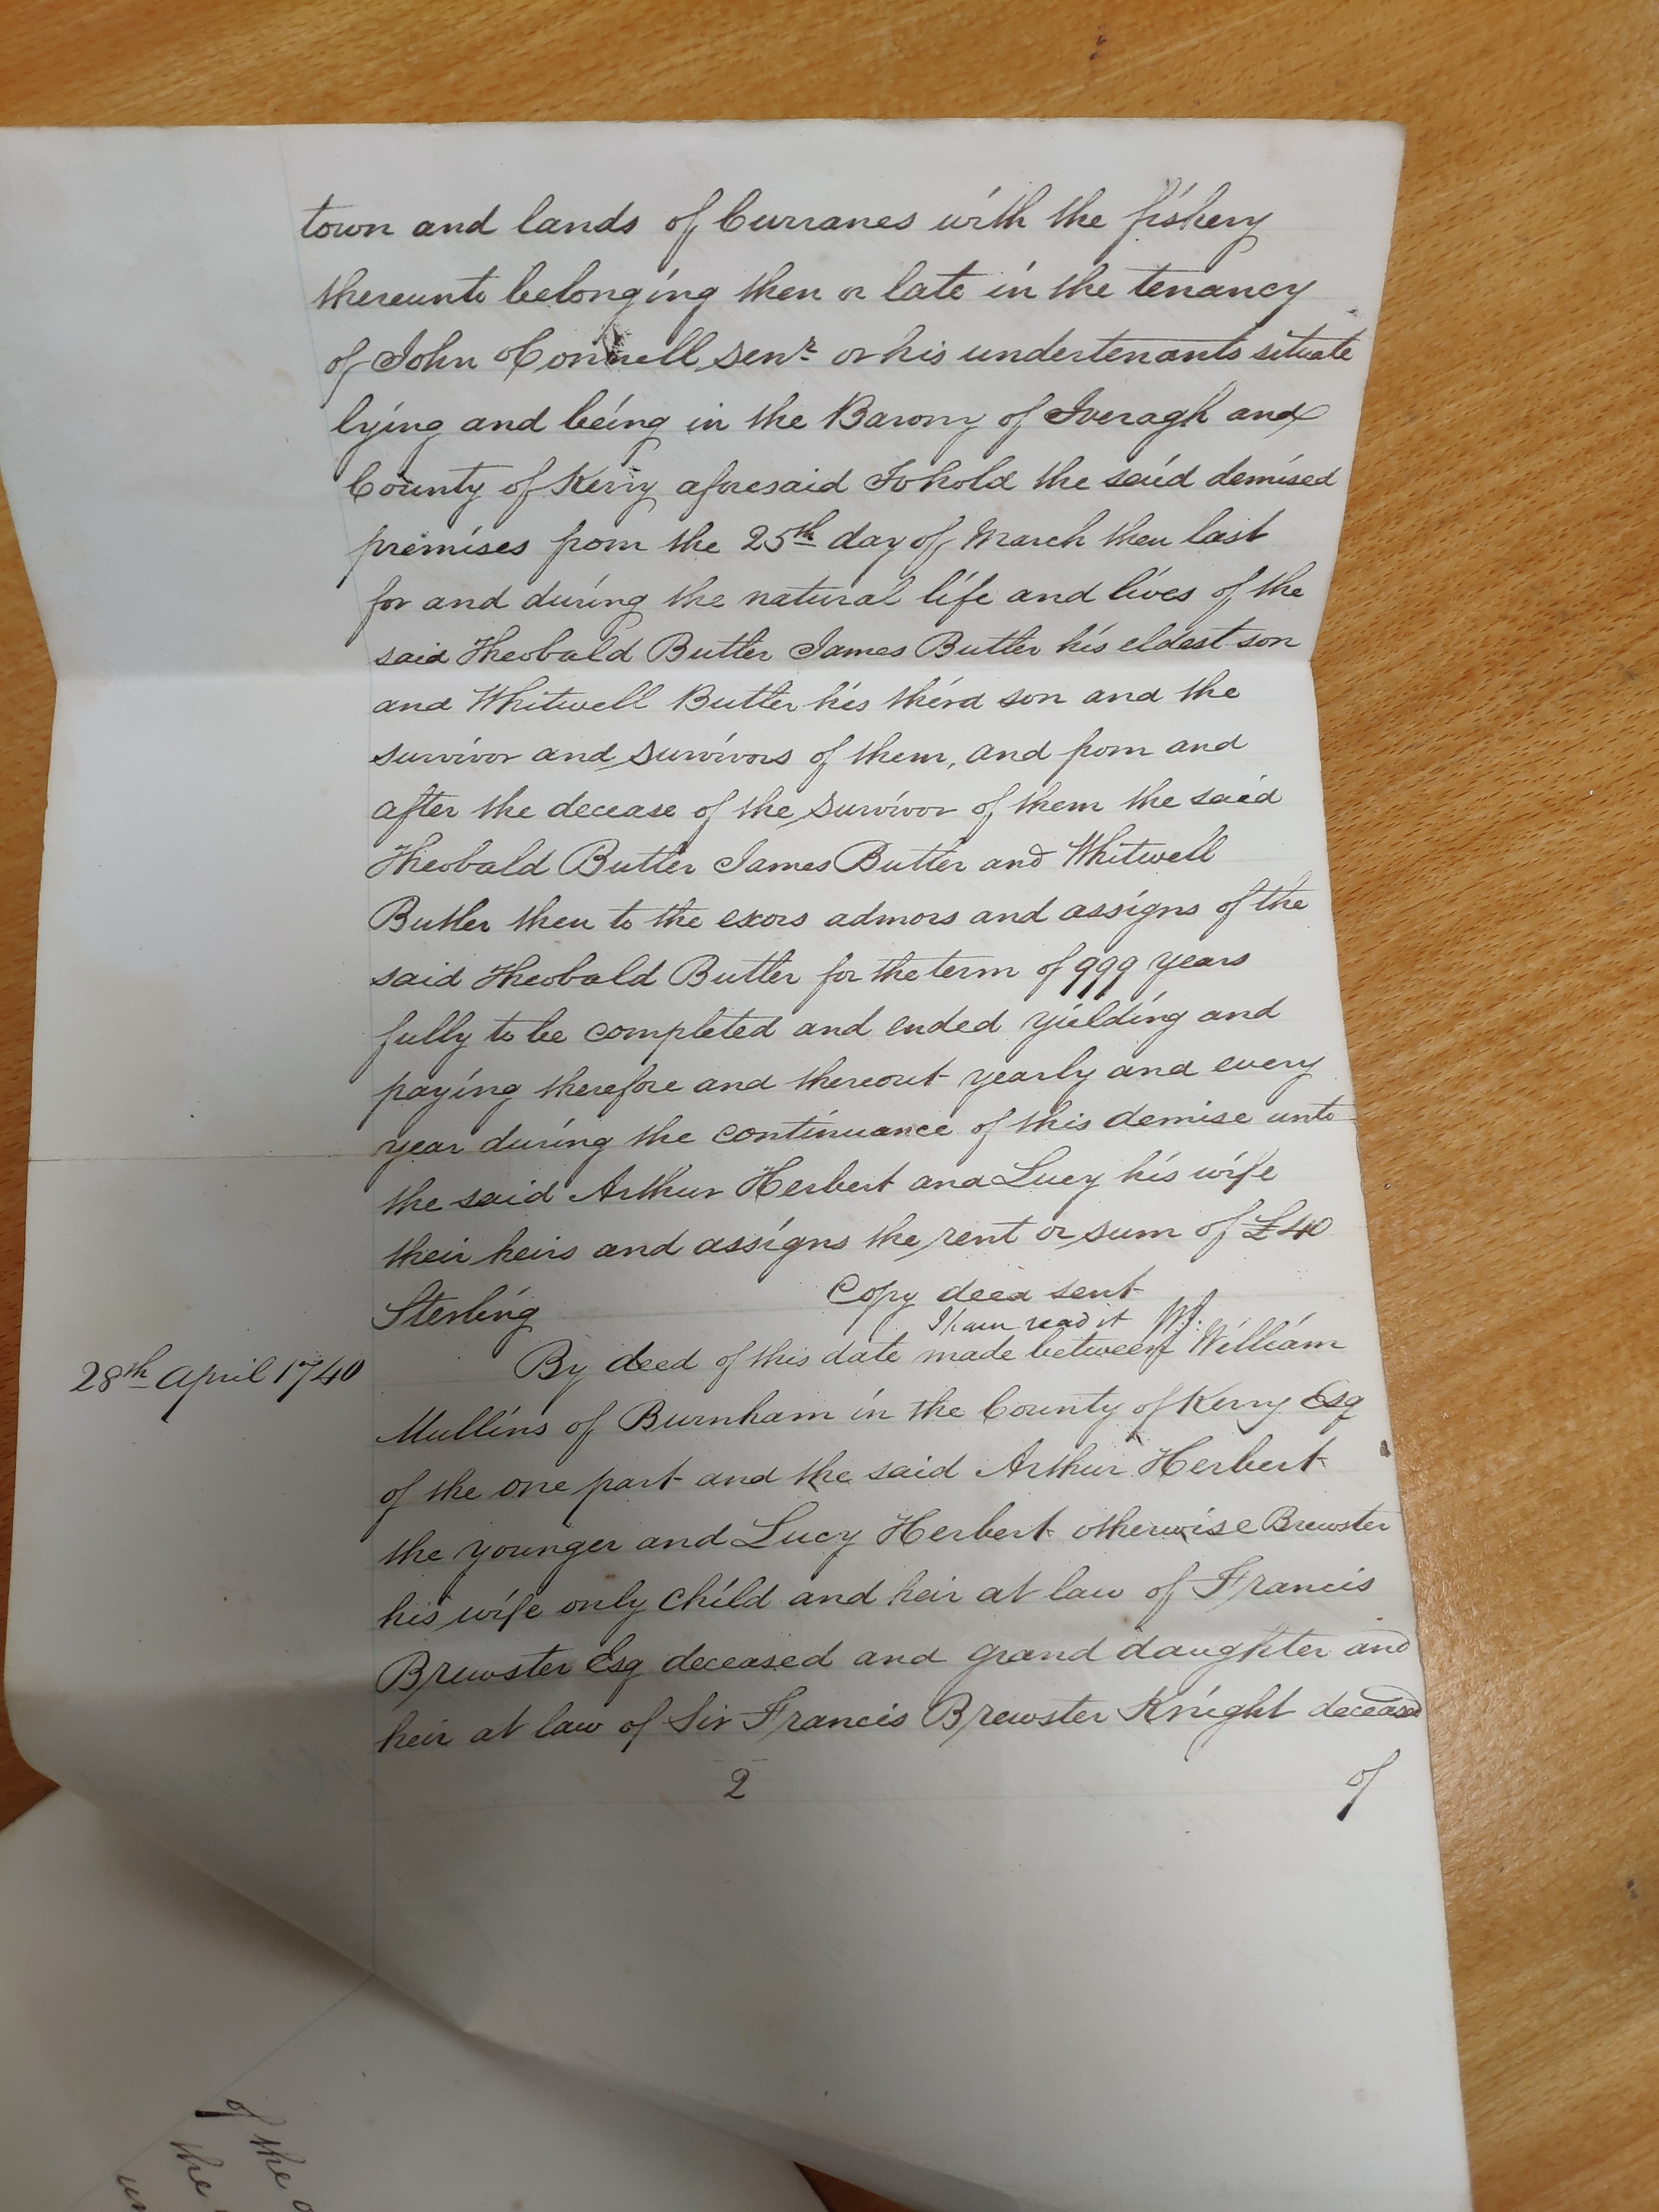 town and lands of Curranes with the fishery
thereunto belonging then or late in the tenancy
of John OConnell Senr or his undertenants situate
lying and being in the Barony of Iveragh and
County of Kerry aforesaid To hold the said demised
premises from the 25th day of March then last
for and during the natural life and lives of the
said Theobald Butler James Butler his eldest son
and Whitwell Butler his third son and the
survivor and survivors of them, and from and
after the decease of the survivor of them the said
Theobald Butler James Butler and Whitwell
Butler then to the exors admors and assigns of the
said Theobald Butler for the term of 999 years
fully to be completed and ended yielding and
paying therefore and thereout yearly and every
year during the continuance of this demise unto
the said Arthur Herbert and Lucy his wife
their heirs and assigns the rent or sum of £40
Sterling
Copy deed sent
I have read it
28th April 1740
By deed of this date made between William
Mullins of Burnham in the County of Kerry Esq
of the one part and the said Arthur Herbert
the younger and Lucy Herbert otherwise Brewster
his wife only child and heir at law of Francis
Brewster Esq deceased and grand daughter and
heir at law of Sir Francis Brewster Knight deceased
2
of
of the
the